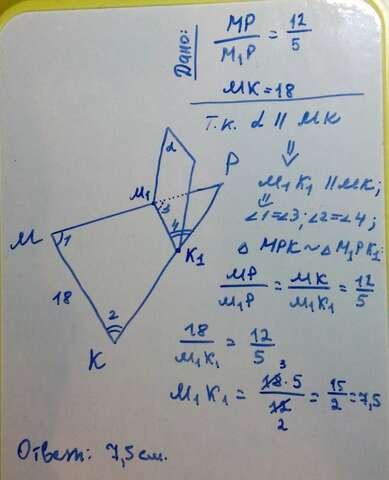 Дано:
MP/M₁P = 12/5
MK = 18
Т.к. α || MK
⇓
M₁K₁ || MK;
⇓
∠1=∠3; ∠2=∠4;
△ MPK ~ △ M₁PK₁:
MP/M₁P = MK/M₁K₁ = 12/5
18/M₁K₁ = 12/5
M₁K₁ = 18·5/12 = 15/2 = 7,5
3
2
α
P
M₁
3
4
K₁
M
1
18
2
K
Ответ: 7,5 см.